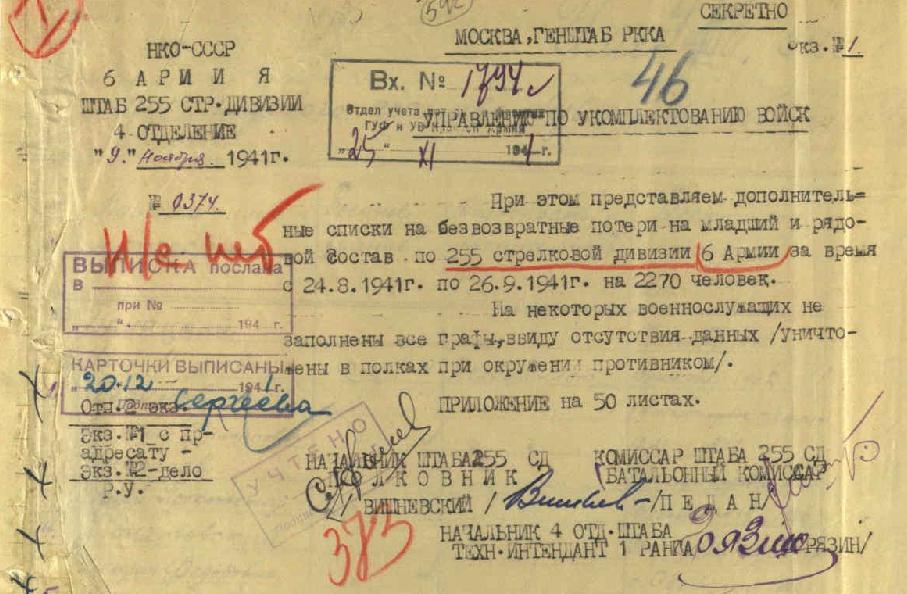 592
СЕКРЕТНО
НКО-СССР
МОСКВА, ГЕНШТАБ РККА
Экз. №1
6 АРМИЯ
Вх. № 1794с
46
ШТАБ 255 СТР. ДИВИЗИИ
Отдел учета
УПРАВЛЕНИЕ ПО УКОМПЛЕКТОВАНИЮ ВОЙСК
4 ОТДЕЛЕНИЕ
"25" XI 1941 г.
"9." Ноября 1941г.
№ 0374.
При этом представляем дополнитель=
ные списки на безвозвратные потери на младший и рядо-
вой состав по 255 стрелковой дивизии 6 Армии за время
с 24.8.1941г. по 26.9.1941г. на 2270 человек.
На некоторых военнослужащих не
заполнены все графы, ввиду отсутствия данных /уничто-
жены в полках при окружении противником/.
ВЫПИСКА послана
в
при №
" " 194 г.
КАРТОЧКИ ВЫПИСАНЫ
"20.12 1941г.
Сергеева
ПРИЛОЖЕНИЕ на 50 листах.
Отп. 2 экз.
Экз. №1 с пр-
адресату -
Экз. №2-дело
Р.У.
УЧТЕНО
НАЧАЛЬНИК ШТАБА 255 СД
ПОЛКОВНИК
ВИШНЕВСКИЙ /
КОМИССАР ШТАБА 255 СД
БАТАЛЬОННЫЙ КОМИССАР
/ПЕДАН/
385
НАЧАЛЬНИК 4 ОТД. ШТАБА
ТЕХН. ИНТЕНДАНТ 1 РАНГА
РЯЗИН/